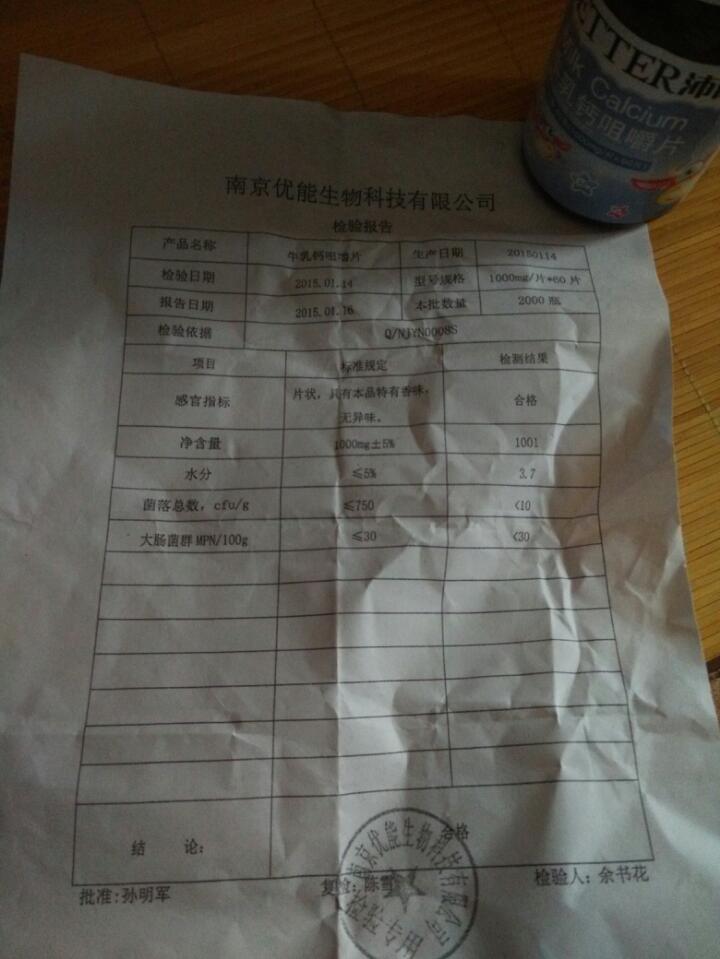 ETTER沛
Milk Calcium
牛乳钙咀嚼片
南京优能生物科技有限公司
检验报告
产品名称 牛乳钙咀嚼片 生产日期 20150114
检验日期 2015.01.14 型号规格 1000mg/片*60 片
报告日期 2015.01.16 本批数量 2000 瓶
检验依据 Q/NJYN0008S
项目 标准规定 检测结果
感官指标 片状，具有本品特有香味，无异味。 合格
净含量 1000mg±5% 1001
水分 ≤5% 3.7
菌落总数，cfu/g ≤750 <10
大肠菌群 MPN/100g ≤30 <30
结 论： 合格
批准：孙明军 复检：陈雪 检验人：余书花
南京优能生物科技有限公司
检验专用